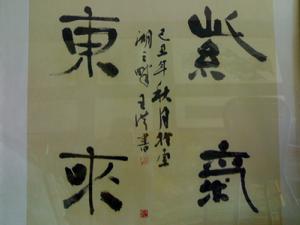 紫氣
東來
己丑年秋月於雲
湖之畔王書